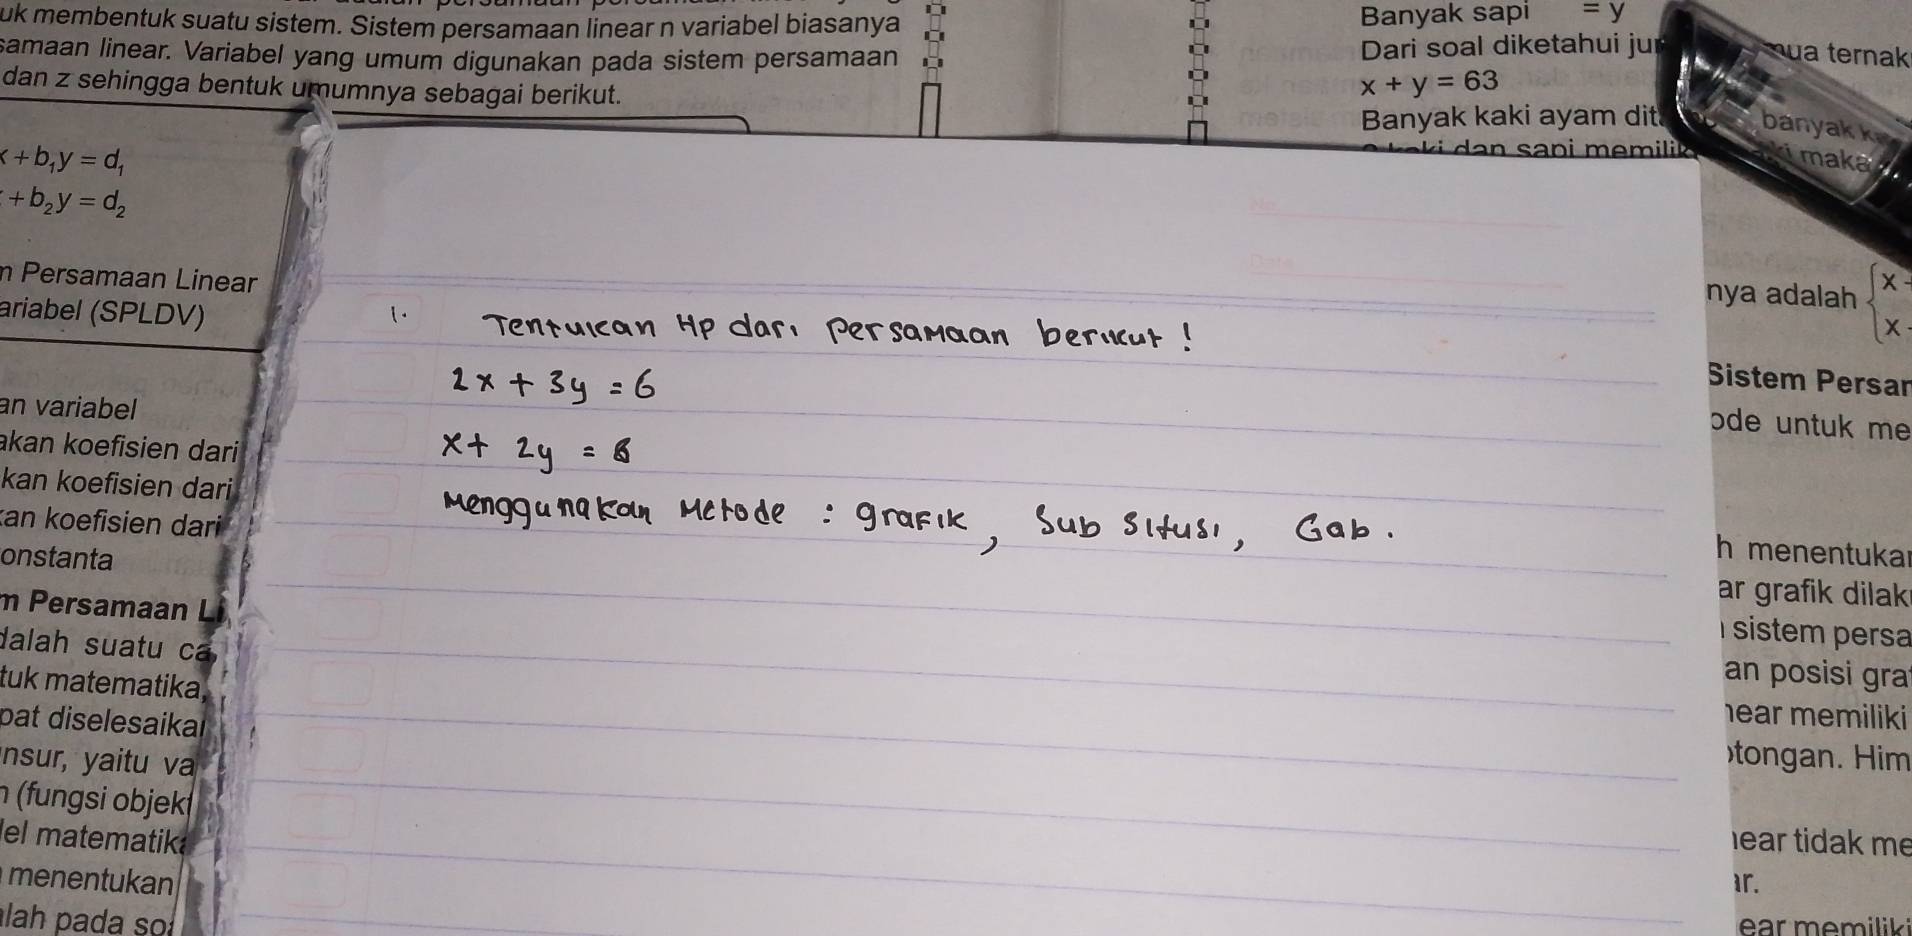 uk membentuk suatu sistem. Sistem persamaan linear n variabel biasanya
samaan linear. Variabel yang umum digunakan pada sistem persamaan
dan z sehingga bentuk umumnya sebagai berikut.
x + b₁y = d₁
+ b₂y = d₂
n Persamaan Linear
ariabel (SPLDV)
an variabel
akan koefisien dari
kan koefisien dari
kan koefisien dari
onstanta
m Persamaan Li
dalah suatu ca
tuk matematika,
pat diselesaikan
nsur, yaitu va
n (fungsi objekt
del matematika
menentukan
alah pada so
1. Tentukan Hp dari Persamaan berikut!
2x + 3y = 6
x + 2y = 8
Menggunakan Metode : grafik, Subsitusi, Gab.
No
Date
Banyak sapi = y
Dari soal diketahui jum mua ternak
x + y = 63
Banyak kaki ayam dit banyak k
kaki dan sapi memilik ki maka
nya adalah { x
x
Sistem Persam
ode untuk me
h menentukan
ar grafik dilak
sistem persa
an posisi gra
near memiliki
otongan. Him
near tidak me
ar.
ear memiliki